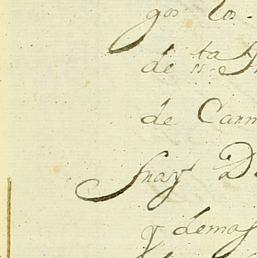 gos los
de
de Carm
Fray D
q demas